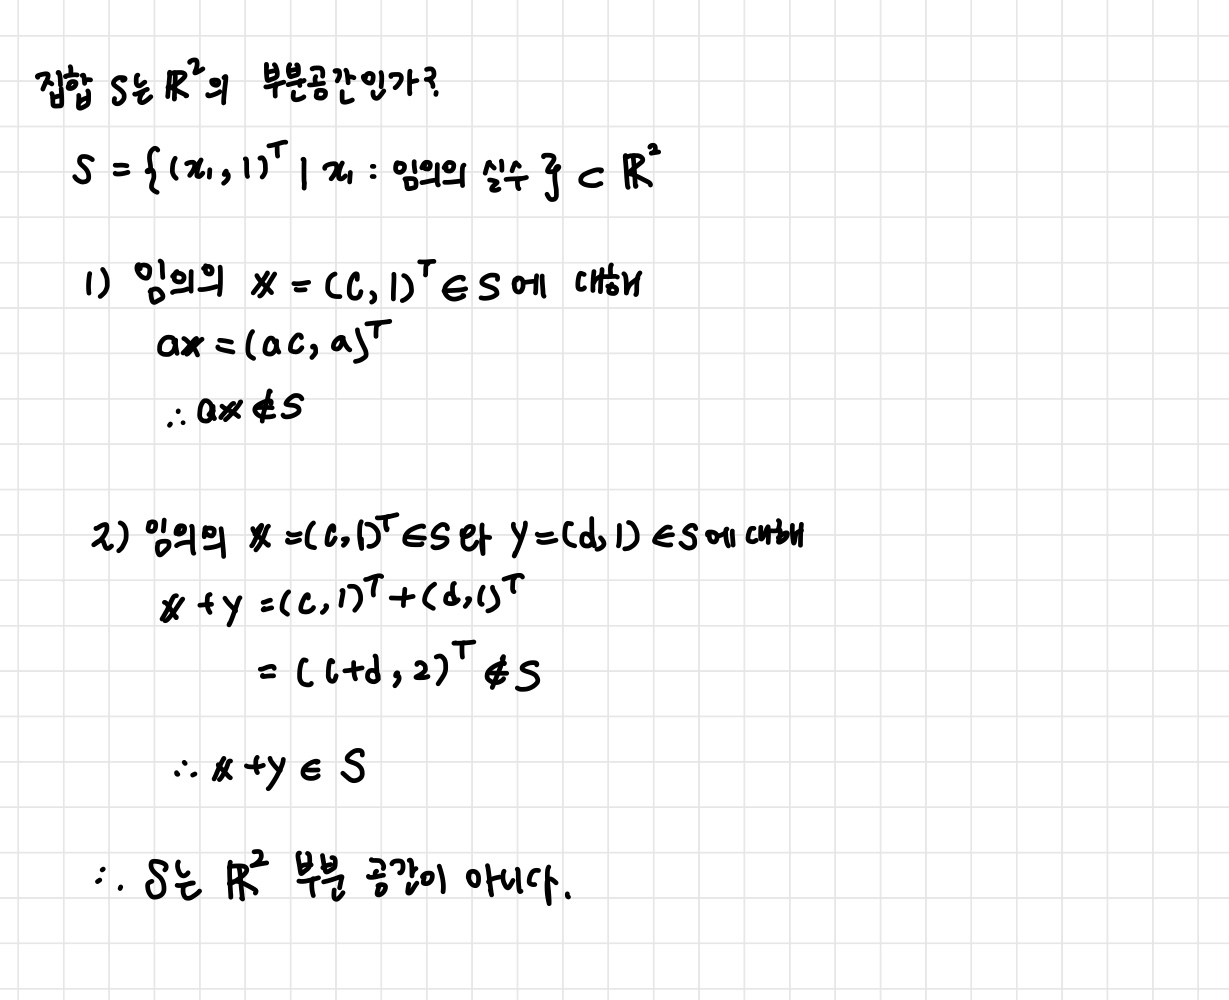 집합 S는 ℝ²의 부분공간인가?
S = {(x₁, 1)ᵀ | x₁ : 임의의 실수 } ⊂ ℝ²
1) 임의의 𝕩 = (c, 1)ᵀ ∈ S에 대해
a𝕩 = (ac, a)ᵀ
∴ a𝕩 ∉ S
2) 임의의 𝕩 = (c, 1)ᵀ ∈ S 와 y = (d, 1) ∈ S에 대해
𝕩 + y = (c, 1)ᵀ + (d, 1)ᵀ
= (c+d, 2)ᵀ ∉ S
∴ 𝕩 + y ∈ S
∴ S는 ℝ² 부분 공간이 아니다.